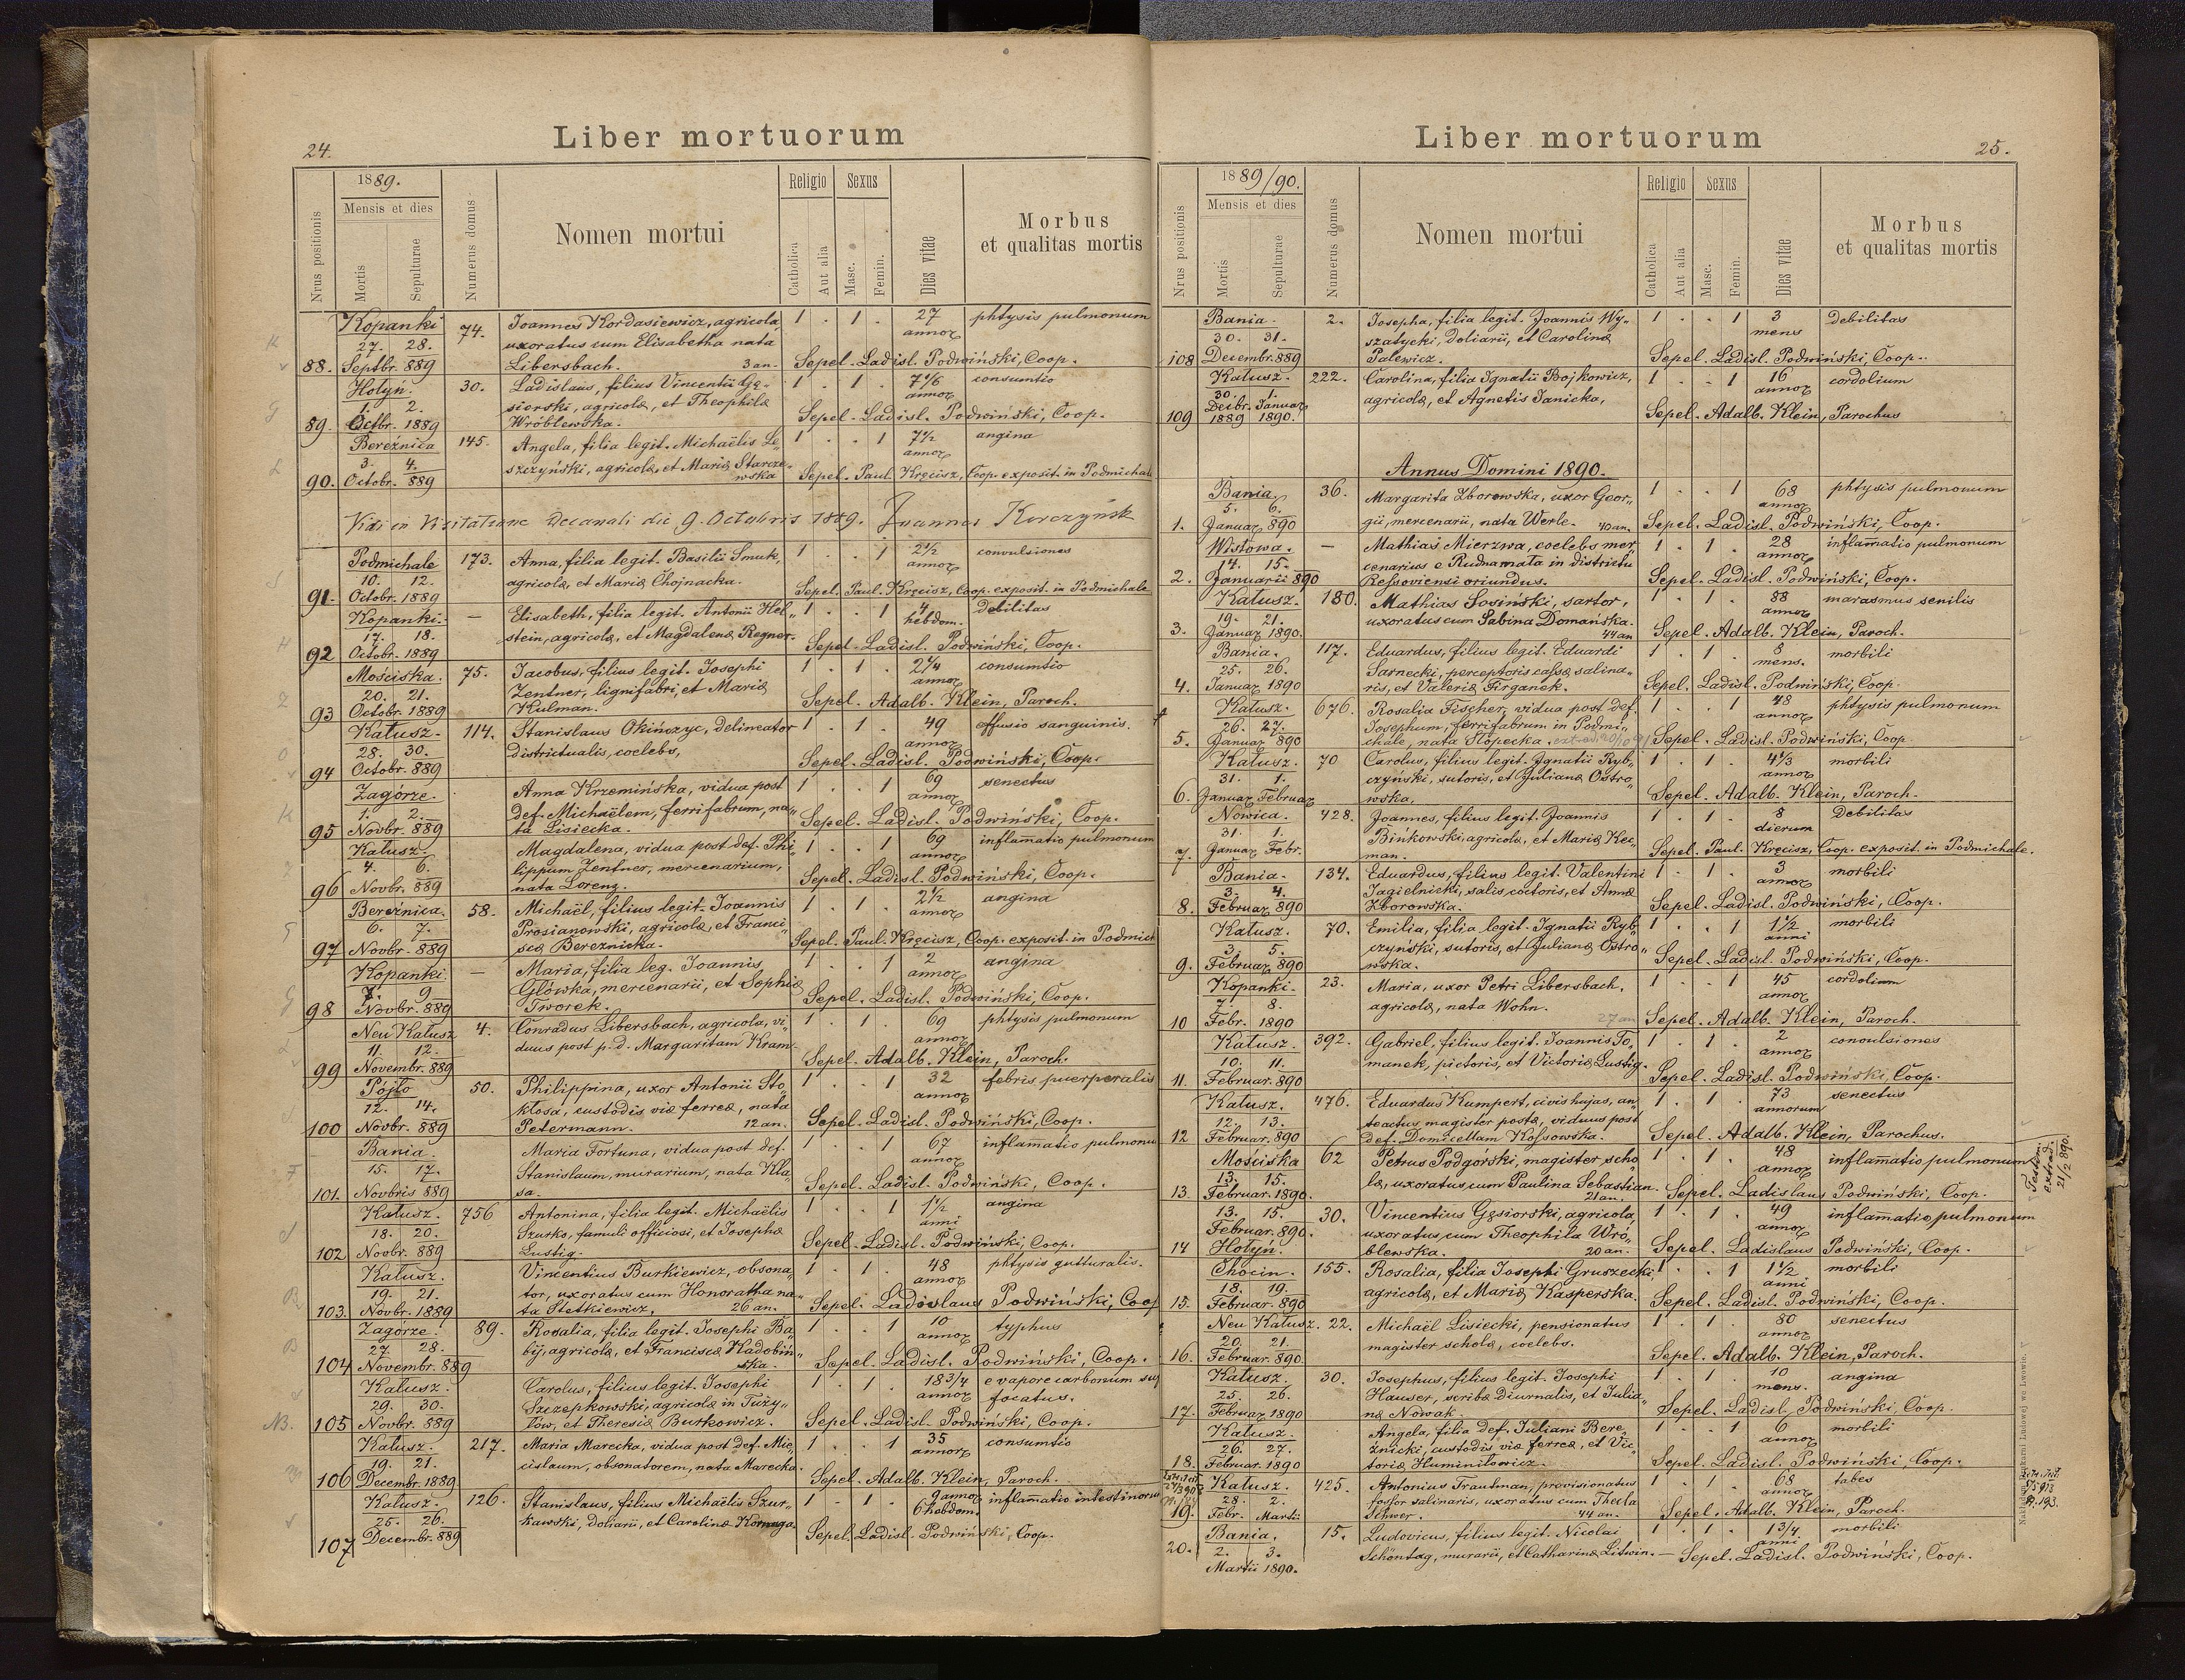 24.
Liber mortuorum
1889.
Mensis et dies
Nrus positionis
Mortis
Sepulturae
Numerus domus
Nomen mortui
Religio
Sexus
Catholica
Aut alia
Masc.
Femin.
Dies vitae
Morbus
et qualitas mortis
Kopanki 74. Joannes Kordasiewicz, agricola 1 . 1 . 27 phtysis pulmonum
27. 28. uxoratus cum Elisabetha nata annor
88. Septbr. 889 Libersbach. 3 an. Sepel. Ladisl. Podwiński, Coop.
Hołyń. 30. Ladislaus, filius Vincentii Gę- 1 . 1 . 7 1/6 consumtio
1. 2. siorski, agricolæ, et Theophilæ annor
89. Octbr. 1889 Wróblewska. Sepel. Ladisl. Podwiński, Coop.
Bereźnica 145. Angela, filia legit. Michaëlis Le 1 . . 1 7 1/2 angina
3. 4. szczyński, agricolæ, et Mariæ Starcze- annor
90. Octobr. 889 wska Sepel. Paul. Kręcisz, Coop. exposit. in Podmichale
Vidi in Visitatione decanali die 9. Octobris 1889. Joannes Korczyńsk
Podmichale 173. Anna, filia legit. Basilii Smuk, 1 . . 1 2 1/2 convulsiones
10. 12. agricolæ, et Mariæ Chojnacka. annor
91. Octobr. 1889 Sepel. Paul. Kręcisz, Coop. exposit. in Podmichale
Kopanki. — Elisabeth, filia legit. Antonii Hel" 1 . . 1 debilitas
17. 18. stein, agricolæ, et Magdalenæ Regner. hebdom.
92 Octobr. 1889 Sepel. Ladisl. Podwiński, Coop.
Mościska. 75. Jacobus, filius legit. Josephi 1 . 1 . 2 1/4 consumtio
20. 21. Zentner, lignifabri, et Mariæ annor
93 Octobr. 1889 Kulman. Sepel. Adalb. Klein, Paroch.
Kałusz. 114. Stanislaus Okińczyc, delineator 1 . 1 . 49 effusio sanguinis.
28. 30. districtualis, coelebs, annor
94 Octobr. 889 Sepel. Ladisl. Podwiński, Coop.
Zagórze. Anna Krzemińska, vidua post 1 . . 1 69 senectus
1. 2. def. Michaëlem, ferrifabrum, na" annor
95 Novbr. 889 ta Lisiecka. Sepel. Ladisl. Podwiński, Coop.
Kałusz. Magdalena, vidua post def. Phi" 1 . . 1 69 inflamatio pulmonum
4. 6. lippum Zentner, mercenarium, annor
96 Novbr. 889 nata Lorenz. Sepel. Ladisl. Podwiński, Coop.
Bereźnica. 58. Michaël, filius legit. Joannis 1 . 1 . 2 1/2 angina
6. 7. Prosianowski, agricolæ, et Franci" annor
97 Novbr. 889 scæ Bereznicka. Sepel. Paul. Kręcisz, Coop. exposit. in Podmich
Kopanki. — Maria, filia leg. Joannis 1 . . 1 2 angina
7. 9 Główka, mercenarii, et Sophiæ annor
98 Novbr. 889 Tworek. Sepel. Ladisl. Podwiński, Coop.
Neu Kałusz 4. Conradus Libersbach, agricola, vi" 1 . 1 . 69 phtysis pulmonum
11. 12. duus post p. d. Margaritam Kram. annor
99 Novembr. 889 Sepel. Adalb. Klein, Paroch.
Pójło 50. Philippina, uxor Antonii Sto 1 . . 1 32 febris puerperalis
12. 14. kłosa, custodis viæ ferreæ, nata annor
100 Novbr. 889 Petermann. 12 an. Sepel. Ladisl. Podwiński, Coop.
Bania. Maria Fortuna, vidua post def. 1 . . 1 67 inflamatio pulmonu
15. 17. Stanislaum, murarium, nata Kla" annor
101. Novbris 889 sa. Sepel. Ladisl. Podwiński, Coop.
Kałusz. 756 Antonina, filia legit. Michaëlis 1 . . 1 1 1/2 angina
18. 20. Szurko, famuli officiosi, et Josephæ anni
102 Novbr. 889 Lustig. Sepel. Ladisl. Podwiński, Coop.
Kałusz. Vincentius Burkiewicz, obsona" 1 . 1 . 48 phtysis gutturalis.
19. 21. tor, uxoratus cum Honoratha na" annor
103. Novbr. 1889 ta Stetkiewicz, 26 an. Sepel. Ladislaus Podwiński, Coop
Zagórze. 89. Rosalia, filia legit. Josephi Ba 1 . . 1 10 typhus
27. 28. bij, agricolæ, et Franciscæ Kadobiń" annor
104 Novembr. 889 ska. Sepel. Ladisl. Podwiński, Coop.
Kałusz. Carolus, filius legit. Josephi 1 . 1 . 18 3/4 e vapore carbonum suf
29. 30. Szczepkowski, agricolæ in Tuży" annor focatus.
NB. 105 Novbr. 889 łów, et Theresiæ Burkowicz. Sepel. Ladisl. Podwiński, Coop.
Kałusz. 217. Maria Marecka, vidua post def. Mie" 1 . . 1 35 consumtio
19. 21. cislaum, obsonatorem, nata Marecka. annor
106 Decembr. 1889 Sepel. Adalb. Klein, Paroch.
Kałusz. 126. Stanislaus, filius Michaëlis Szur" 1 . 1 . 9 annor inflamatio intestinorum
25. 26. kawski, doliarii, et Carolinæ Kornaga. 6 hebdom.
107 Decembr. 889 Sepel. Ladisl. Podwiński, Coop.
Liber mortuorum
25.
1889/90.
Mensis et dies
Nrus positionis
Mortis
Sepulturae
Numerus domus
Nomen mortui
Religio
Sexus
Catholica
Aut alia
Masc.
Femin.
Dies vitae
Morbus
et qualitas mortis
Bania. 2. Josepha, filia legit. Joannis Wy" 1 . . 1 3 Debilitas
30. 31. szatycki, doliarii, et Carolinæ mens
108 Decembr. 889 Palewicz. Sepel. Ladisl. Podwiński, Coop.
Kałusz. 222. Carolina, filia Ignatii Bojkowicz, 1 . . 1 16 cordolium
30. 1. agricolæ, et Agnetis Janicka, annor
Dcibr. Januar
109 1889 1890. Sepel. Adalb. Klein, Parochus
Annus Domini 1890.
Bania. 36. Margarita Zborowska, uxor Geor" 1 . . 1 68 phtysis pulmonum
5. 6. gii, mercenarii, nata Werle. 40 an. annor
1. Januar 890 Sepel. Ladisl. Podwiński, Coop.
Wistowa. — Mathias Mierzwa, coelebs mer" 1 . 1 . 28 inflamatio pulmonum
14. 15. cenarius e Rudna mata in districtu annor
2. Januarii 890 Ressoviensi oriundus. Sepel. Ladisl. Podwiński, Coop.
Kałusz. 180. Mathias Sosiński, sartor, 1 . 1 . 88 marasmus senilis
19. 21. uxoratus cum Sabina Domańska. annor
3. Januar 1890. 44 an Sepel. Adalb. Klein, Paroch.
Bania. 117. Eduardus, filius legit. Eduardi 1 . 1 . 8 morbili
25. 26. Sarnecki, perceptoris cassæ salina" mens.
4. Januar 1890 ris, et Valeriæ Firganek. Sepel. Ladisl. Podwiński, Coop.
Kałusz. 676. Rosalia Fischer, vidua post def. 1 . . 1 48 phtysis pulmonum
26. 27. Josephum, ferrifabrum in Podmi" annor
5. Januar 890 chale, nata Słopecka. Sepel. Ladisl. Podwiński, Coop.
Kałusz. 70 Carolus, filius legit. Ignatii Ryb" 1 . 1 . 4 1/3 morbili
31. 1. czyński, sutoris, et Julianæ Ostro" annor
6. Januar Februar wska. Sepel. Adalb. Klein, Paroch.
Nowica. 428. Joannes, filius legit. Joannis 1 . 1 . 8 Debilitas
31. 1. Bińkowski, agricolæ, et Mariæ Kec" dierum
7. Januar Febr. man. Sepel. Paul. Kręcisz, Coop. exposit. in Podmichale.
Bania. 134. Eduardus, filius legit. Valentini 1 . 1 . 3 morbili
3. 4. Jagielnicki, salis coctoris, et Annæ annor
8. Februar 890 Zborowska. Sepel. Ladisl. Podwiński, Coop.
Kałusz. 70. Emilia, filia legit. Ignatii Ryb" 1 . . 1 1 1/2 morbili
3. 5. czyński, sutoris, et Julianæ Ostro" anni
9. Februar 890 wska. Sepel. Ladisl. Podwiński, Coop.
Kopanki. 23. Maria, uxor Petri Libersbach, 1 . . 1 45 cordolium
7. 8. agricolæ, nata Wohn. annor
10 Febr. 1890 27 an Sepel. Adalb. Klein, Paroch.
Kałusz. 392. Gabriel, filius legit. Joannis To" 1 . 1 . 2 convulsiones
10. 11. manek, pictoris, et Victoriæ Lustig. annor
11. Februar. 890 Sepel. Ladisl. Podwiński, Coop.
Kałusz. 476. Eduardus Kumpert, civis hujas, an" 1 . 1 . 73 senectus
12. 13. teactus magister postæ, viduus post annorum
12 Februar. 890 def. Domicellam Kossowska. Sepel. Adalb. Klein, Parochus.
Mościska 62 Petrus Podgórski, magister scho" 1 . 1 . 48 inflamatio pulmonum
13. 15. læ, uxoratus cum Paulina Sebastian. annor
13. Februar. 1890. 21 an. Sepel. Ladislaus Podwiński, Coop.
Testim. extrad. 21/2 890.
13. 15. 30. Vincentius Gęsiorski, agricola, 1 . 1 . 49 inflamatio pulmonum
Februar. 890. uxoratus cum Theophila Wró" annor
14 Hołyń. blewska. 20 an. Sepel. Ladislaus Podwiński, Coop.
Chocin. 155. Rosalia, filia Josephi Gruszecki 1 . . 1 1 1/2 morbili
18. 19. agricolæ, et Mariæ Kasperska. anni
15. Februar. 890 Sepel. Ladisl. Podwiński, Coop.
Neu Kałusz. 22. Michaël Lisiecki, pensionatus 1 . 1 . 80 senectus
20. 21. magister scholæ, coelebs. annor
16. Februar. 890 Sepel. Adalb. Klein, Paroch.
Kałusz. 30. Josephus, filius legit. Josephi 1 . 1 . 10 angina
25. 26. Hauser, scribæ diurnalis, et Julia" mens.
17. Februar 1890 næ Nowak. Sepel. Ladisl. Podwiński, Coop.
Kałusz. Angela, filia def. Juliani Bere" 1 . . 1 6 morbili
26. 27. źnicki, custodis viæ ferreæ, et Vic" annor
18. Februar. 1890 toriæ Huminiłowicz. Sepel. Ladisl. Podwiński, Coop.
Kałusz. 425. Antonius Trautman, provisionatus 1 . 1 . 68 tabes
28. 2. fossor salinaris, uxoratus cum Thecla annor
19. Febr. Martii Schwer. 44 an. Sepel. Adalb. Klein, Paroch.
Bania. 15. Ludovicus, filius legit. Nicolai 1 . 1 . 1 3/4. morbili
20. 2. 3. Schöntag, murarii, et Catharinæ Litwin. — anni Sepel. Ladisl. Podwiński, Coop.
Martii 1890.